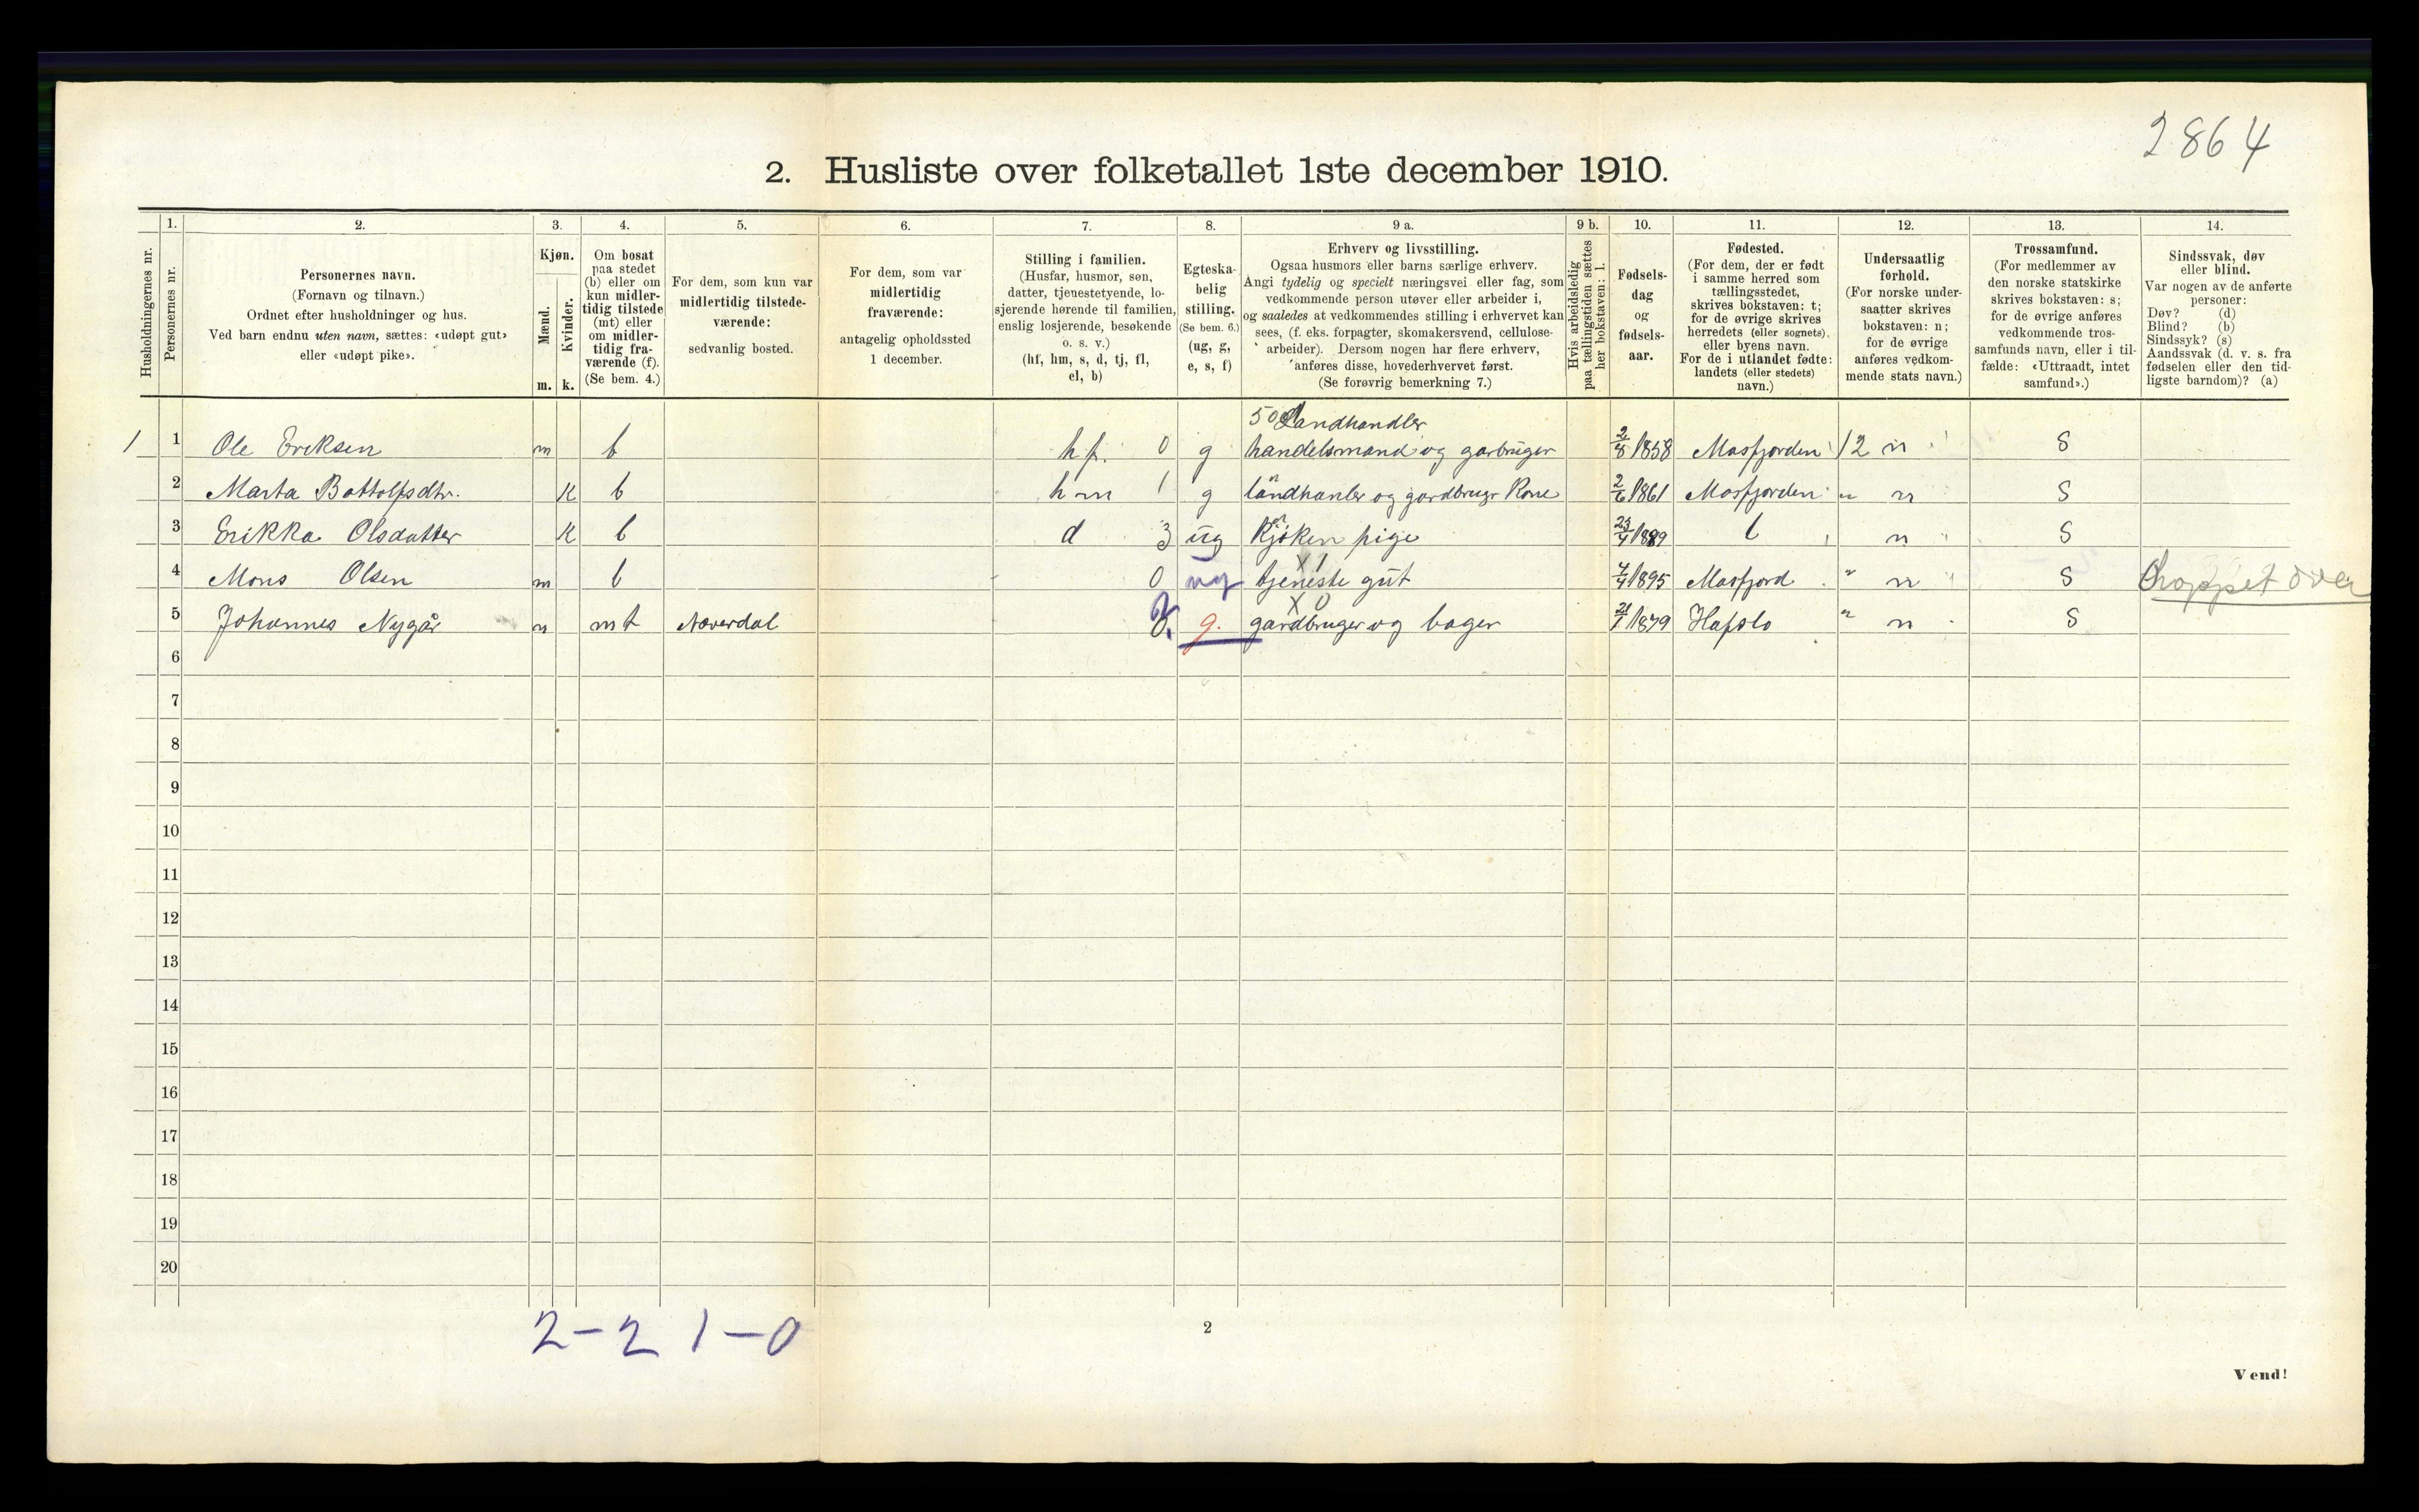 2864
2. Husliste over folketallet 1ste december 1910.
1. 2. 3. 4. 5. 6. 7. 8. 9 a. 9 b. 10. 11. 12. 13. 14.
Husholdningernes nr.
Personernes nr.
Personernes navn.
(Fornavn og tilnavn.)
Ordnet efter husholdninger og hus.
Ved barn endnu uten navn, sættes: «udøpt gut»
eller «udøpt pike».
Kjøn.
Mænd.
Kvinder.
m. k.
Om bosat
paa stedet
(b) eller om
kun midler-
tidig tilstede
(mt) eller
om midler-
tidig fra-
værende (f).
(Se bem. 4.)
For dem, som kun var
midlertidig tilstede-
værende:
sedvanlig bosted.
For dem, som var
midlertidig
fraværende:
antagelig opholdssted
1 december.
Stilling i familien.
(Husfar, husmor, søn,
datter, tjenestetyende, lo-
sjerende hørende til familien,
enslig losjerende, besøkende
o. s. v.)
(hf, hm, s, d, tj, fl,
el, b)
Egteska-
belig
stilling.
(Se bem. 6.)
(ug, g,
e, s, f)
Erhverv og livsstilling.
Ogsaa husmors eller barns særlige erhverv.
Angi tydelig og specielt næringsvei eller fag, som
vedkommende person utøver eller arbeider i,
og saaledes at vedkommendes stilling i erhvervet kan
sees, (f. eks. forpagter, skomakersvend, cellulose-
arbeider). Dersom nogen har flere erhverv,
anføres disse, hovederhvervet først.
(Se forøvrig bemerkning 7.)
Hvis arbeidsledig
paa tællingstiden sættes
her bokstaven: l.
Fødsels-
dag
og
fødsels-
aar.
Fødested.
(For dem, der er født
i samme herred som
tællingsstedet,
skrives bokstaven: t;
for de øvrige skrives
herredets (eller sognets)
eller byens navn.
For de i utlandet fødte:
landets (eller stedets)
navn.)
Undersaatlig
forhold.
(For norske under-
saatter skrives
bokstaven: n;
for de øvrige
anføres vedkom-
mende stats navn.)
Trossamfund.
(For medlemmer av
den norske statskirke
skrives bokstaven: s;
for de øvrige anføres
vedkommende tros-
samfunds navn, eller i til-
fælde: «Uttraadt, intet
samfund».)
Sindssvak, døv
eller blind.
Var nogen av de anførte
personer:
Døv? (d)
Blind? (b)
Sindssyk? (s)
Aandssvak (d. v. s. fra
fødselen eller den tid-
ligste barndom)? (a)
Landhandler
1 1 Ole Eriksen m b hf. 0 g handelsmand og garbruger 2/8 1858 Masfjorden 12 n S
2 Marta Bottolfsdtr. K b hm 1 g landhanler og gardbrugr Kone 2/6 1861 Masfjorden " n S
3 Erikka Olsdatter K b d 3 ug Kjøken pige 23/4 1889 t n S
x 1
4 Mons Olsen m b 0 ug tjeneste gut 4/4 1895 Masfjord " n S Hoppet over
x 0
5 Johannes Nygår m mt Næverdal g. gardbruger og bager 21/1 1879 Hafslo " n S
6
7
8
9
10
11
12
13
14
15
16
17
18
19
20
2-2 1-0
2
Vend!